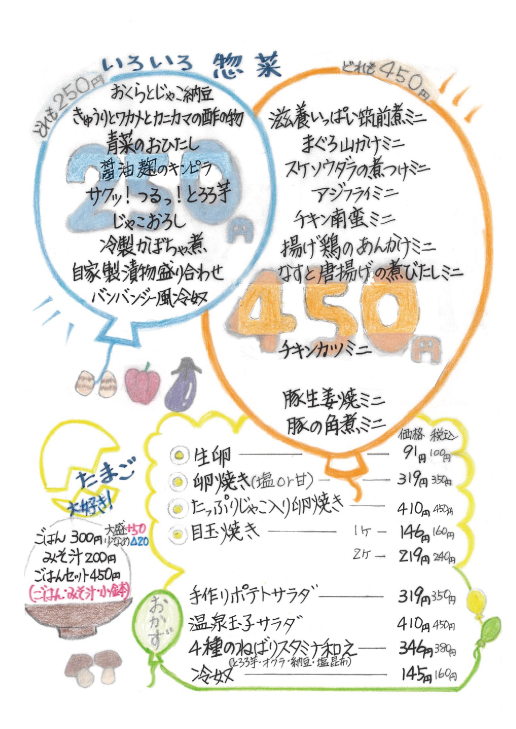 いろいろ 惣菜
どれも250円
おくらとじゃこ納豆
きゅうりとワカメとカニカマの酢の物
青菜のおひたし
醤油麹のキンピラ
サクッ！つるっ！とろろ芋
じゃこおろし
冷製かぼちゃ煮
自家製漬物盛り合わせ
バンバンジー風冷奴
250円
どれも450円
滋養いっぱい筑前煮ミニ
まぐろ山かけミニ
スケソウダラの煮つけミニ
アジフライミニ
チキン南蛮ミニ
揚げ鶏のあんかけミニ
なすと唐揚げの煮びたしミニ
450円
チキンカツミニ
豚生姜焼ミニ
豚の角煮ミニ
たまご
大好き！
価格 税込
生卵 91円 100円
卵焼き(塩or甘) 319円 350円
たっぷりじゃこ入り卵焼き 410円 450円
目玉焼き 1ケ 146円 160円
2ケ 219円 240円
ごはん 300円 大盛+50
少なめ△20
みそ汁 200円
ごはんセット450円
(ごはん・みそ汁・小鉢)
おかず
手作りポテトサラダ 319円 350円
温泉玉子サラダ 410円 450円
4種のねばりスタミナ和え 346円 380円
(とろろ芋・オクラ・納豆・塩昆布)
冷奴 145円 160円